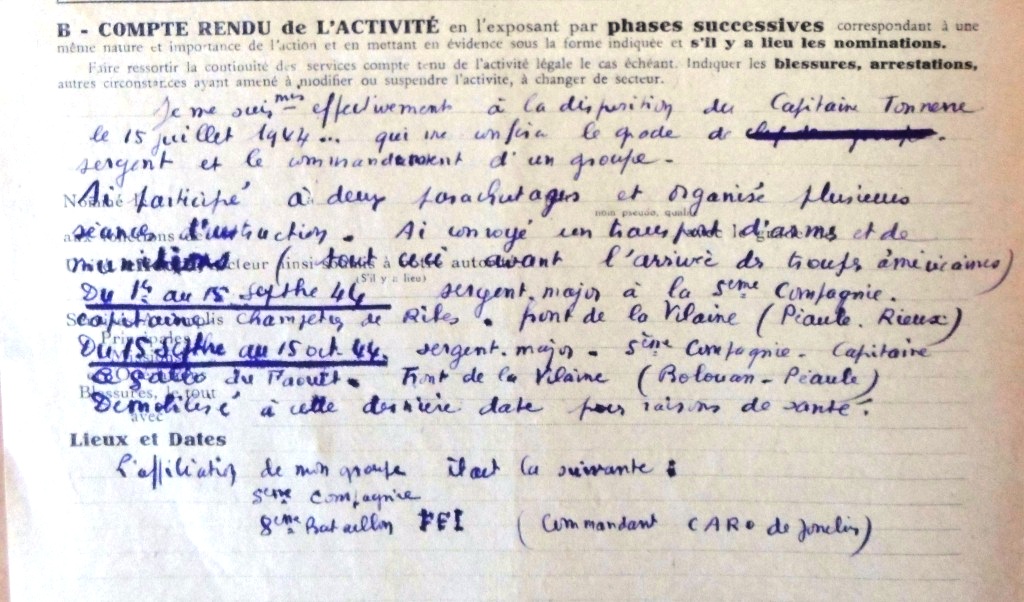 B - COMPTE RENDU de L'ACTIVITÉ en l'exposant par phases successives correspondant à une
même nature et importance de l'action et en mettant en évidence sous la forme indiquée et s'il y a lieu les nominations.
Faire ressortir la coutiouité des services compte tenu de l'activité légale le cas échéant. Indiquer les blessures, arrestations,
autres circonstances ayant amené à modifier ou suspendre l'activite, à changer de secteur.
Je me suis mis effectivement à la disposition du Capitaine Tonnerre
le 15 juillet 1944... qui me confia le grade de
sergent et le commandement d'un groupe -
Ai participé à deux parachutages et organisé plusieurs
nom pseudo, qualité
séances d'instruction. Ai convoyé un transport d'armes et de
munitions (tout ceci avant l'arrivée des troupes américaines)
(S'il y a lieu)
Du 1er au 15 septbre 44 sergent-major à la 5ème Compagnie.
capitaine Champetier de Ribes. front de la Vilaine (Péaule. Rieux)
Du 15 septbre au 15 oct. 44. sergent-major - 5ème Compagnie - Capitaine
du Faouët. Front de la Vilaine (Péaule)
Blessures, le tout
Démobilisé à cette dernière date pour raisons de santé.
avec
Lieux et Dates
L'affiliation de mon groupe était la suivante :
5ème Compagnie
8ème Bataillon FFI (Commandant CARO de Josselin)